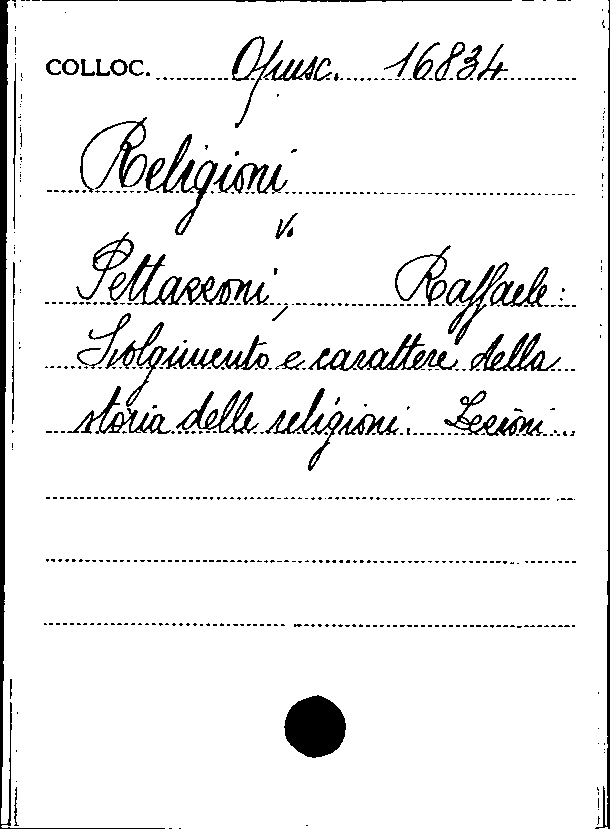 COLLOC. Opusc. 16834
Religioni
V.
Pettazzoni, Raffaele:
Svolgimento e carattere della
storia delle religioni. Lezioni...